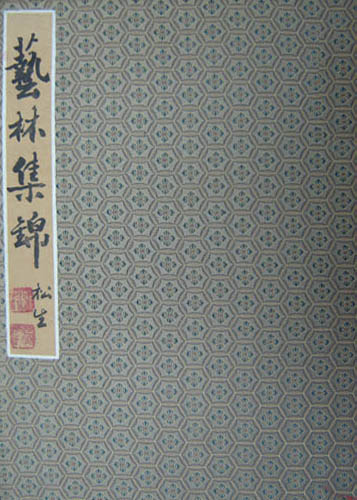 藝林集錦
松生